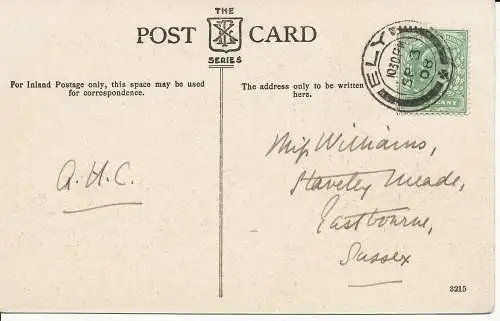 THE
POST CARD
SERIES
For Inland Postage only, this space may be used
for correspondence.
The address only to be written
here.
ELY
SP 3
08
A.H.C.
Miss Williams,
Staveley Meade,
Eastbourne,
Sussex
3215